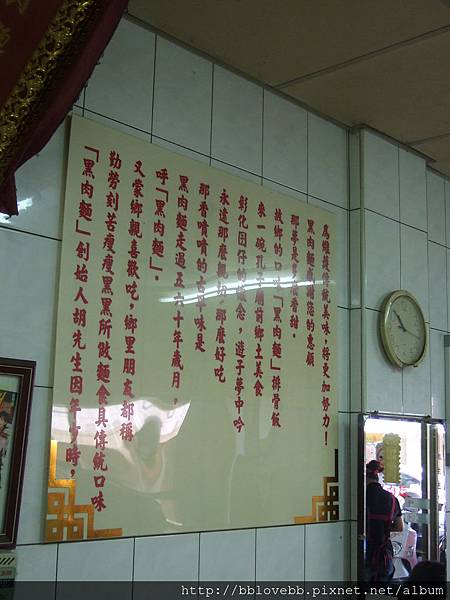 「黑肉麵」創始人胡先生因年少時，
勤勞刻苦瘦瘦黑黑所做麵食具傳統口味
又蒙鄉親喜歡吃，鄉里朋友都稱
呼「黑肉麵」．
黑肉麵走過五六十年歲月，
那香噴噴的古早味是
永遠那麼親切 那麼好吃
彰化囝仔的懷念，遊子夢中吟
來一碗孔子廟前鄉土美食
故鄉的口味「黑肉麵」排骨飯
那夢是 香甜．
黑肉麵感謝您的惠顧
為維護傳統美味，將更加努力！
http://bblovebb.pixnet.net/album